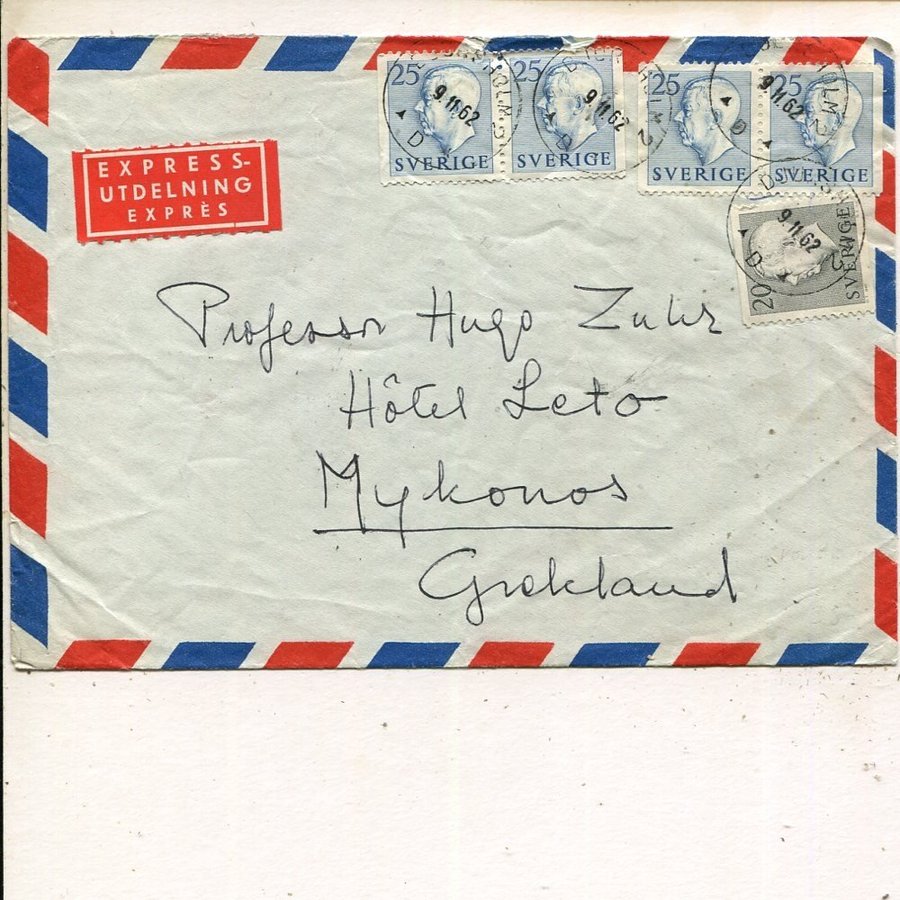 EXPRESS-
UTDELNING
EXPRÈS
25 SVERIGE
25 SVERIGE
25 SVERIGE
25 SVERIGE
20 SVERIGE
9.11.62
9.11.62
9.11.62
9.11.62
D
D
D
D
Professor Hugo Zuhr
Hôtel Leto
Mykonos
Grekland